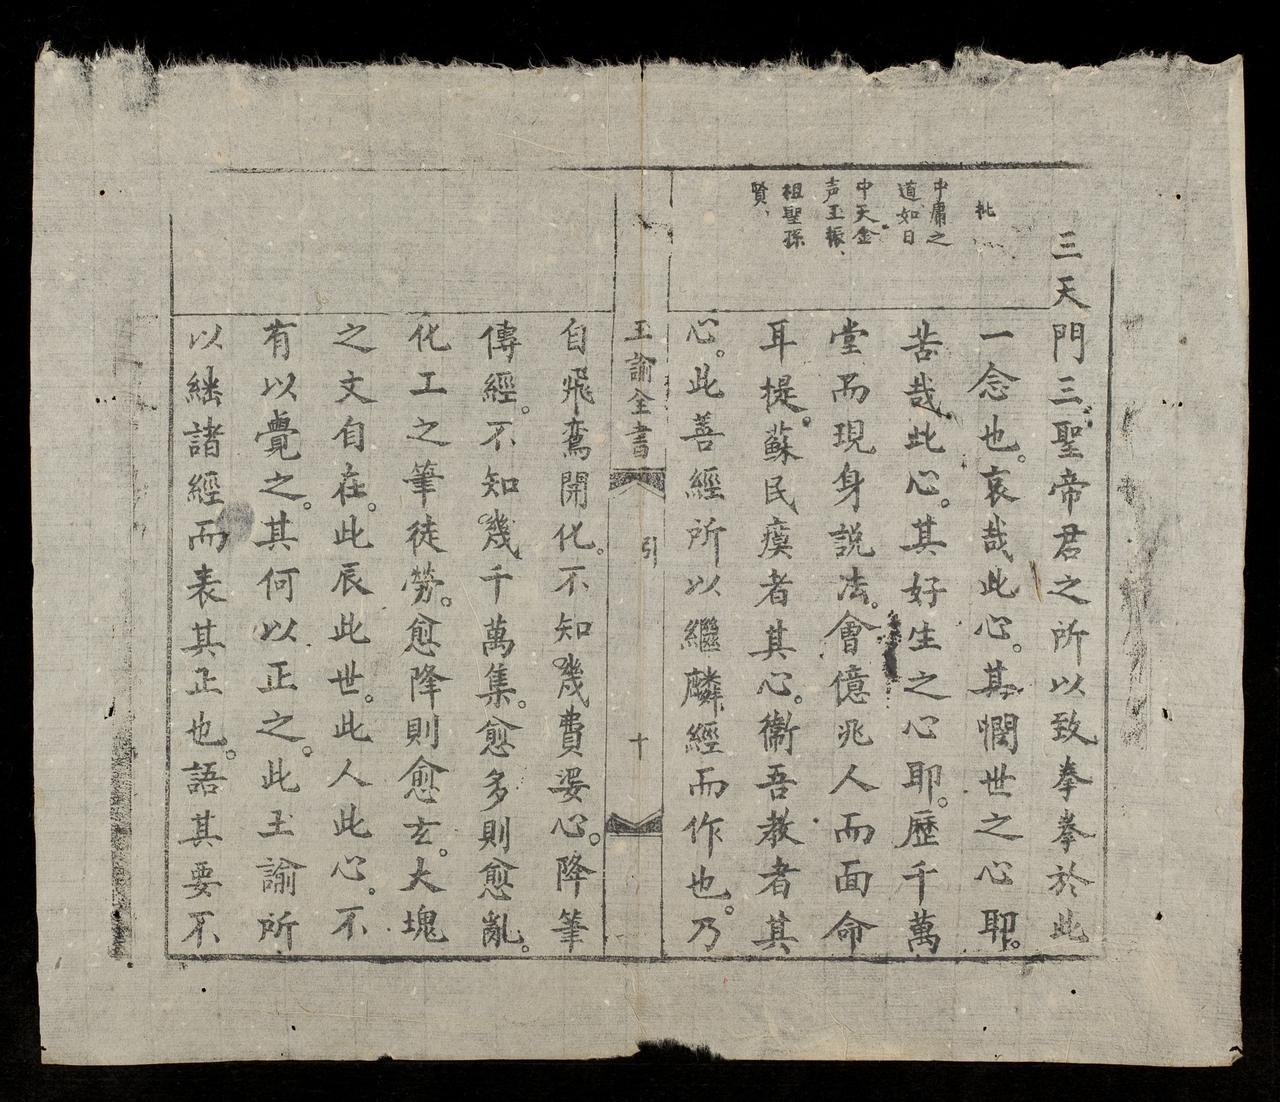 三天門三聖帝君之所以致拳拳於此
一念也。哀哉此心。其憫世之心耶。
苦哉此心。其好生之心耶。歷千萬
堂而現身說法。會億兆人而面命
耳提。蘇民瘼者其心。衞吾教者其
心。此善經所以繼麟經而作也。乃
批
中庸之
道如日
中天金
声玉振、
祖聖孫
賢、
玉諭全書
引
十
自飛鸞開化。不知幾費婆心。降筆
傳經。不知幾千萬集。愈多則愈亂。
化工之筆徒勞。愈降則愈玄。大塊
之文自在。此辰此世。此人此心。不
有以覺之。其何以正之。此玉諭所
以継諸經而表其正也。語其要不